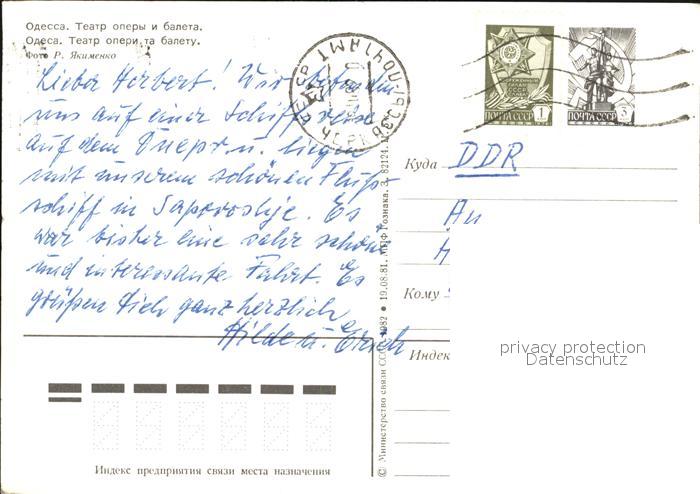 Одесса. Театр оперы и балета.
Одеса. Театр опери та балету.
Фото Р. Якименко
Lieber Herbert! Wir befinden
uns auf einer Schiffsreise
auf dem Dnepr u. liegen
mit unserem schönen Fluß-
schiff in Saporoshje. Es
war bisher eine sehr schöne
und interessante Fahrt. Es
grüßen Dich ganz herzlich
Hilde u. Erich
ПОЧТА СССР 1
ПОЧТА СССР 5
Куда DDR
An
Кому
Индекс
privacy protection
Datenschutz
© Министерство связи СССР, 1982 • 19.08.81. МПФ Гознака. З. 82124.
Индекс предприятия связи места назначения